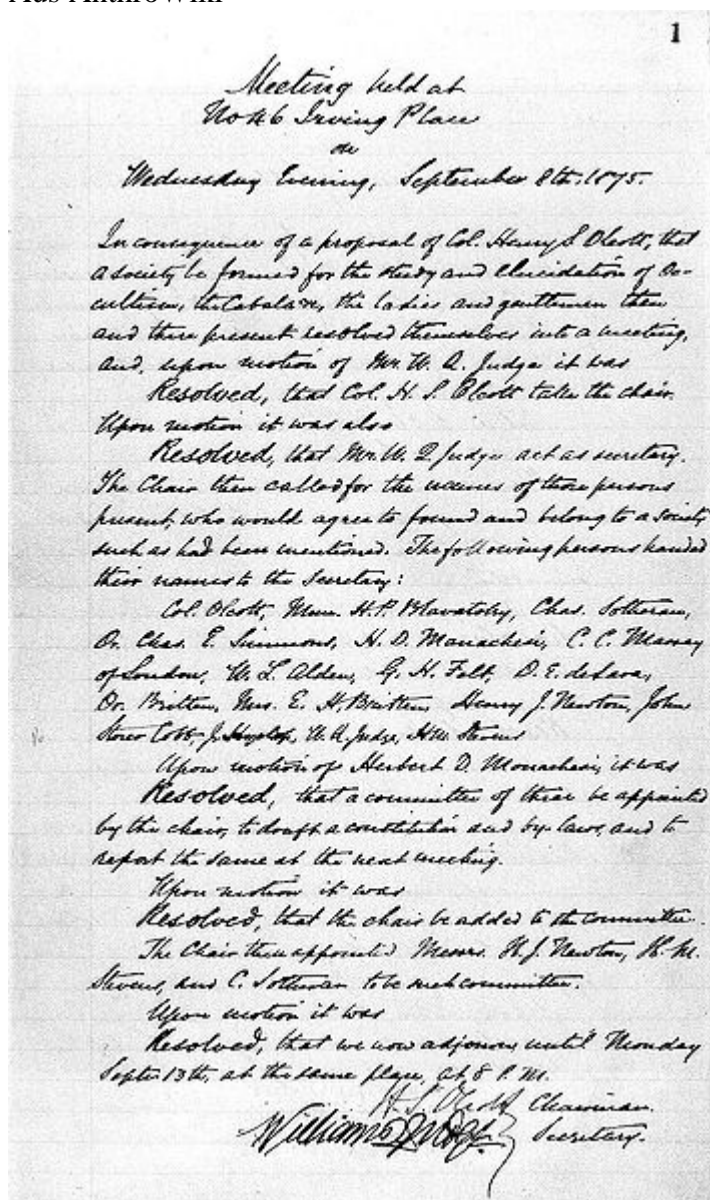 Aus AnthroWiki
1
Meeting held at
No 46 Irving Place
on
Wednesday Evening, September 8th. 1875.
In consequence of a proposal of Col. Henry S. Olcott, that
a society be formed for the study and elucidation of Oc-
cultism, the Cabala &c, the ladies and gentlemen then
and there present resolved themselves into a meeting,
and, upon motion of Mr. W. Q. Judge it was
Resolved, that Col. H. S. Olcott take the chair.
Upon motion it was also
Resolved, that Mr. W. Q. Judge act as secretary.
The Chair then called for the names of those persons
present, who would agree to found and belong to a society
such as had been mentioned. The following persons handed
their names to the Secretary:
Col. Olcott, Mme. H. P. Blavatsky, Chas. Sotheran,
Dr. Chas. E. Simmons, H. D. Monachesi, C. C. Massey
of London, W. L. Alden, G. H. Felt, D. E. de Lara,
Dr. Britten, Mrs. E. H. Britten, Henry J. Newton, John
Storer Cobb, J. Hyslop, W. Q. Judge, H. M. Stevens
Upon motion of Herbert D. Monachesi, it was
Resolved, that a committee of three be appointed
by the chair, to draft a constitution and by laws, and to
report the same at the next meeting.
Upon motion it was
Resolved, that the chair be added to the committee.
The Chair then appointed Messrs. H. J. Newton, H. M.
Stevens, and C. Sotheran to be such committee.
Upon motion it was
Resolved, that we now adjourn until Monday
Septr 13th, at the same place, at 8 P. M.
H. S. Olcott Chairman.
William Q Judge Secretary.